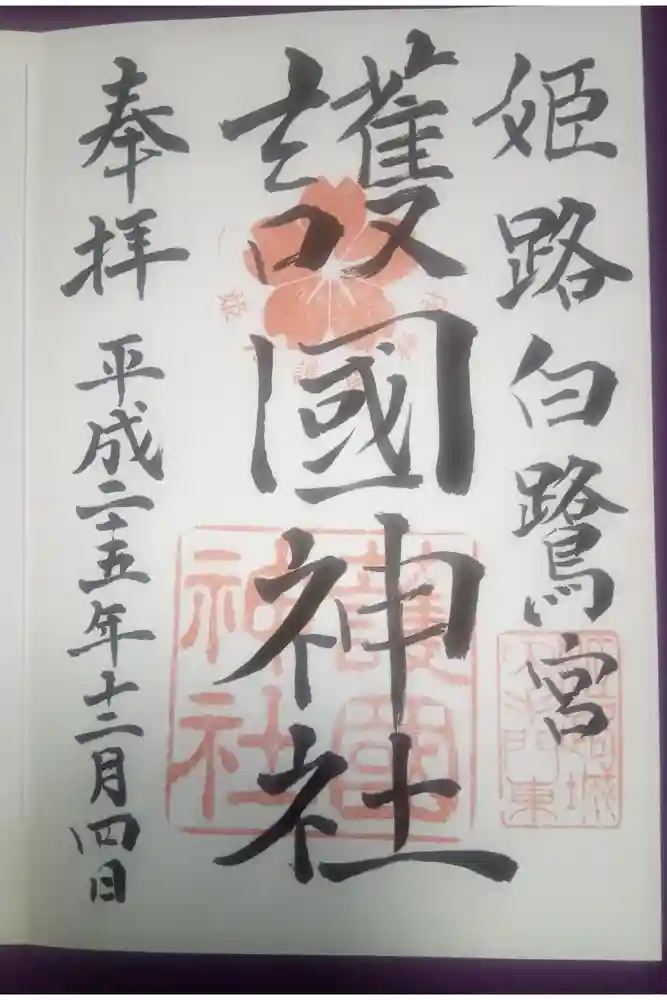 姫路白鷺宮
護國神社
奉拝
平成二十五年十二月四日
護國
神社
姫路城
大手門東